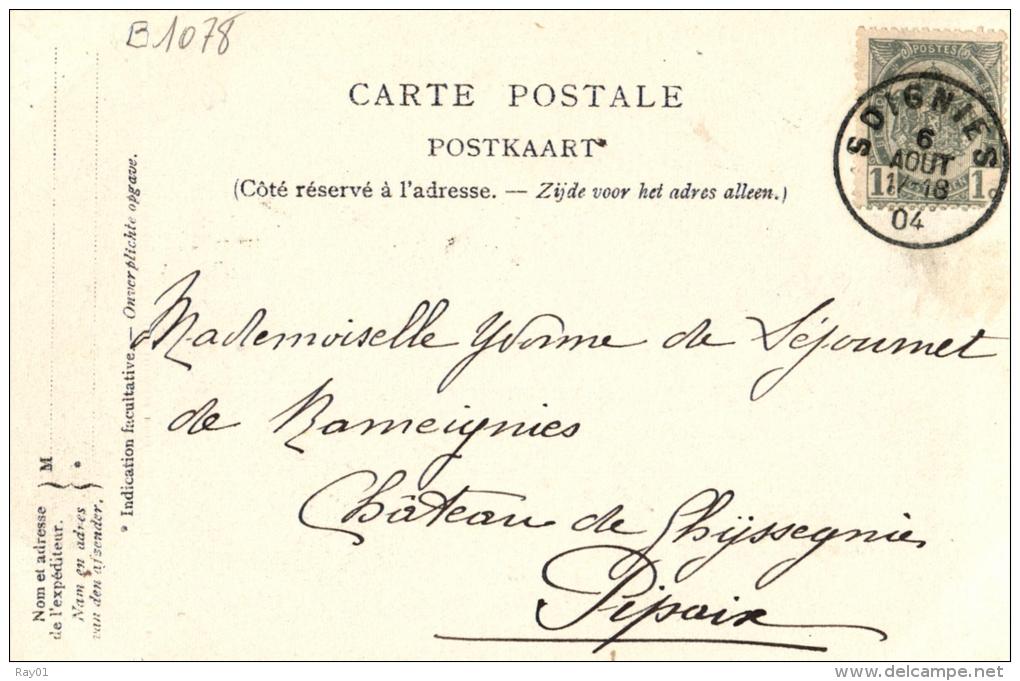 B1078
CARTE POSTALE
POSTKAART
(Côté réservé à l'adresse. — Zijde voor het adres alleen.)
POSTES
SOIGNIES
6
AOUT
17-18
04
1 1
Mademoiselle Yvonne de Séjournet
de Rameignies
Château de Ghyssegnies
Pipaix
Nom et adresse
de l'expéditeur.
Nam en adres
van den afzender.
} M *
* Indication facultative. — Onverplichte opgave.
Ray01
www.delcampe.net